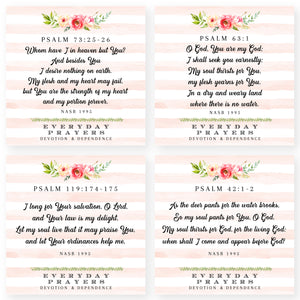 PSALM 73:25-26
Whom have I in heaven but You?
And besides You
I desire nothing on earth.
My flesh and my heart may fail,
but God is the strength of my heart
and my portion forever.
NASB 1995
EVERYDAY
PRAYERS
DEVOTION & DEPENDENCE
PSALM 63:1
O God, You are my God;
I shall seek You earnestly;
My soul thirsts for You,
my flesh yearns for You
In a dry and weary land
where there is no water.
NASB 1995
EVERYDAY
PRAYERS
DEVOTION & DEPENDENCE
PSALM 119:174-175
I long for Your salvation, O Lord,
and Your law is my delight.
Let my soul live that it may praise You,
and let Your ordinances help me.
NASB 1995
EVERYDAY
PRAYERS
DEVOTION & DEPENDENCE
PSALM 42:1-2
As the deer pants for the water brooks,
So my soul pants for You, O God.
My soul thirsts for God, for the living God;
when shall I come and appear before God?
NASB 1995
EVERYDAY
PRAYERS
DEVOTION & DEPENDENCE